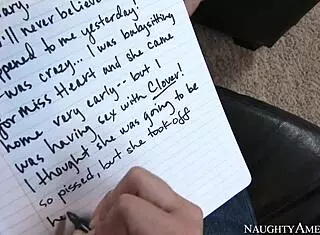 iary
'll never believe
ppened to me yesterday!
was crazy... I was babysitting
for miss Heart and she came
home very early-- but I
was having sex with Clover!
I thought she was going to be
so pissed, but she took off
he
NAUGHTYAME